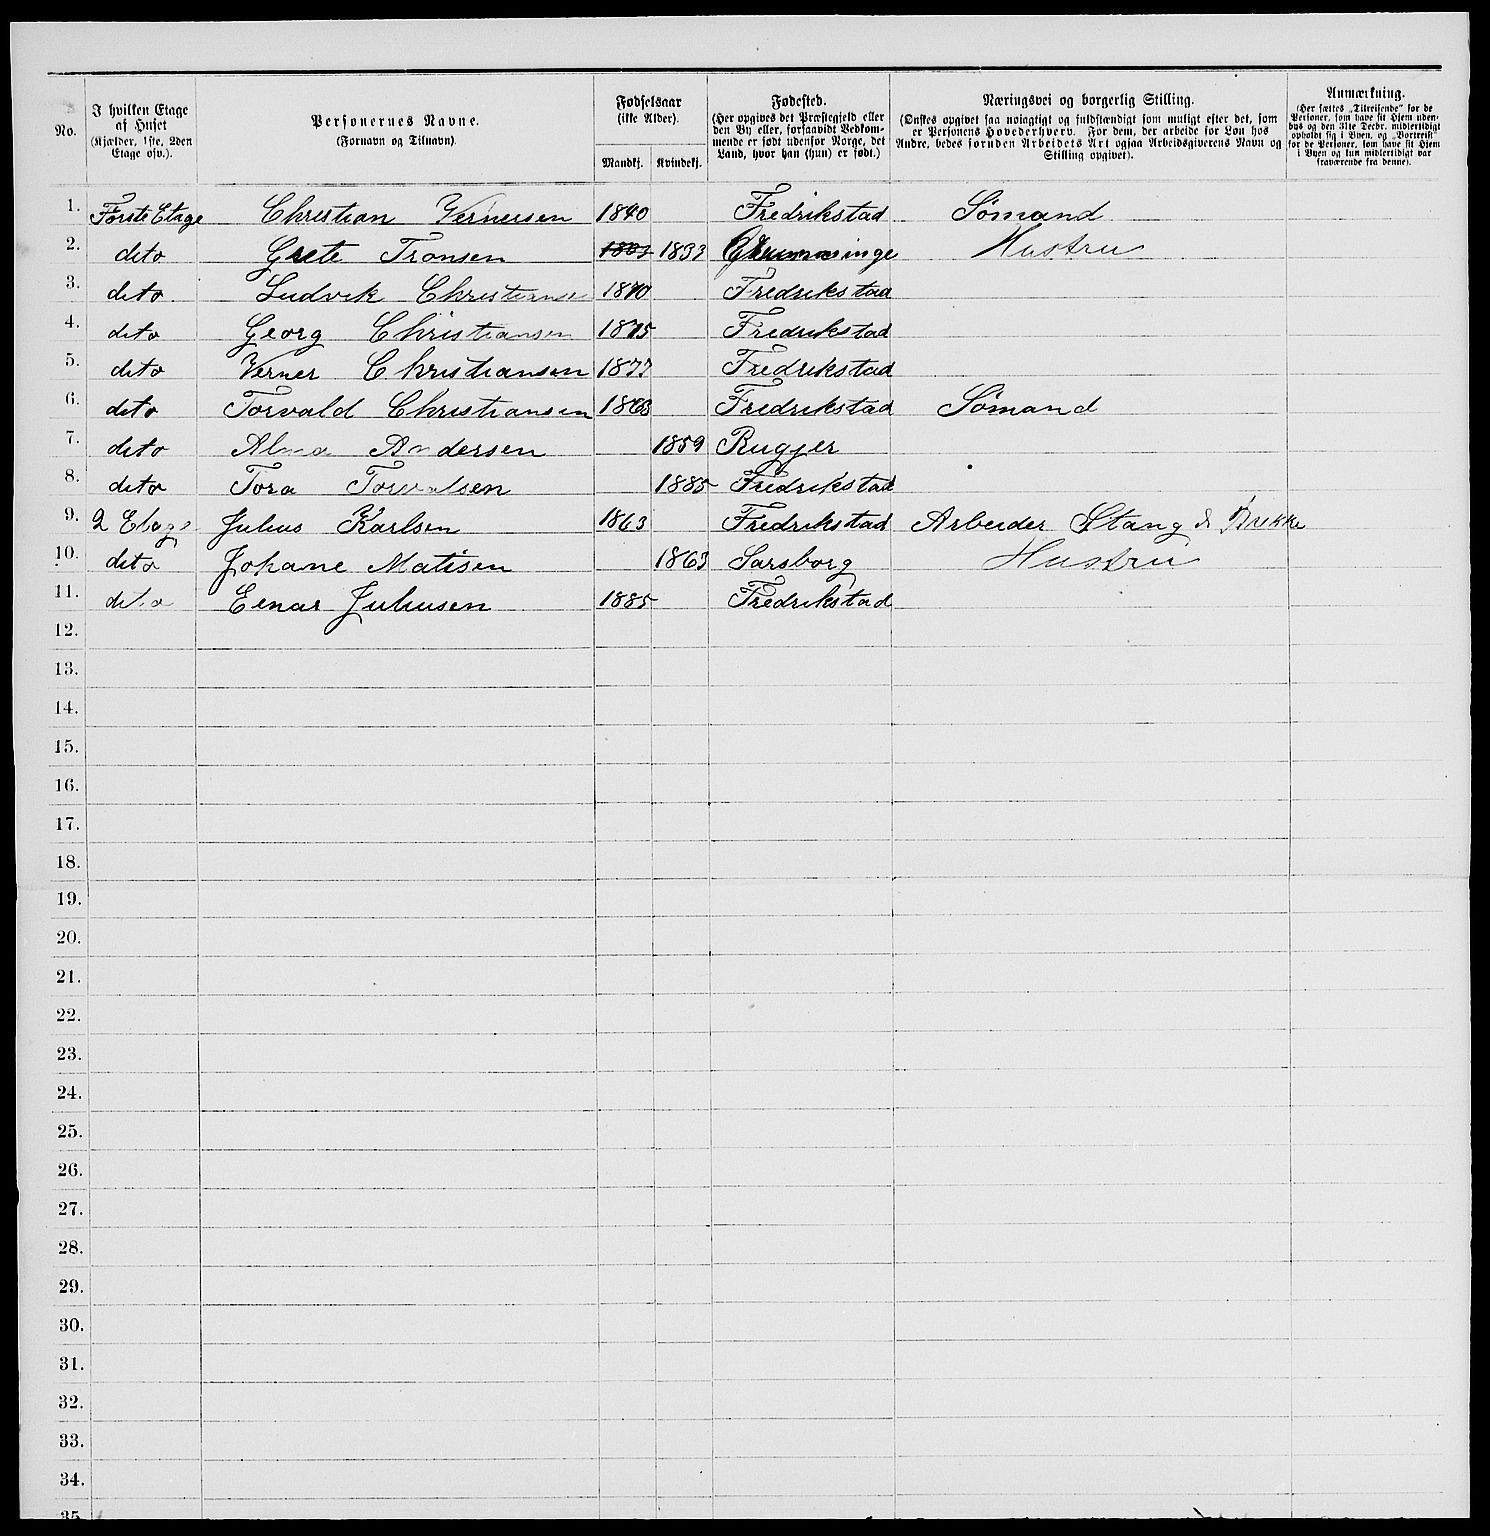 No.
I hvilken Etage af Huset (Kjælder, 1ste, 2den Etage osv.).
Personernes Navne. (Fornavn og Tilnavn).
Fødselsaar (ikke Alder). Mandkj. Kvindekj.
Fødested. (Her opgives det Præstegjeld eller den By eller, forsaavidt Vedkommende er født udenfor Norge, det Land, hvor han (hun) er født.)
Næringsvei og borgerlig Stilling. (Ønskes opgivet saa nøiagtigt og fuldstændigt som muligt efter det, som er Personens Hovederhverv. For dem, der arbeide for Løn hos Andre, bedes foruden Arbeidets Art ogsaa Arbeidsgiverens Navn og Stilling opgivet).
Anmærkning. (Her sættes „Tilreisende" for de Personer, som have sit Hjem udenbys og den 31te Decbr. midlertidigt opholdt sig i Byen, og „Bortreist" for de Personer, som have sit Hjem i Byen og kun midlertidigt var fraværende fra denne).
1. Første Etage Christian Vernersen 1840 Fredrikstad Sømand
2. dito Grete Tronsen 1833 Hustru
3. dito Ludvik Christianse 1870 Fredrikstad
4. dito Georg Christiansen 1875 Fredrikstad
5. dito Verner Christiansen 1877 Fredrikstad
6. dito Torvald Christiansen 1863 Fredrikstad Sømand
7. dito Alma Andersen 1859 Rugjer
8. dito Tora Torvalsen 1885 Fredrikstad
9. 2 Etage Julius Karlsen 1863 Fredrikstad Arbeider Stang & Brekke
10. dito Johane Matisen 1863 Sarsborg Hustru
11. dito Einar Juliusen 1885 Fredrikstad
12.
13.
14.
15.
16.
17.
18.
19.
20.
21.
22.
23.
24.
25.
26.
27.
28.
29.
30.
31.
32.
33.
34.
35.